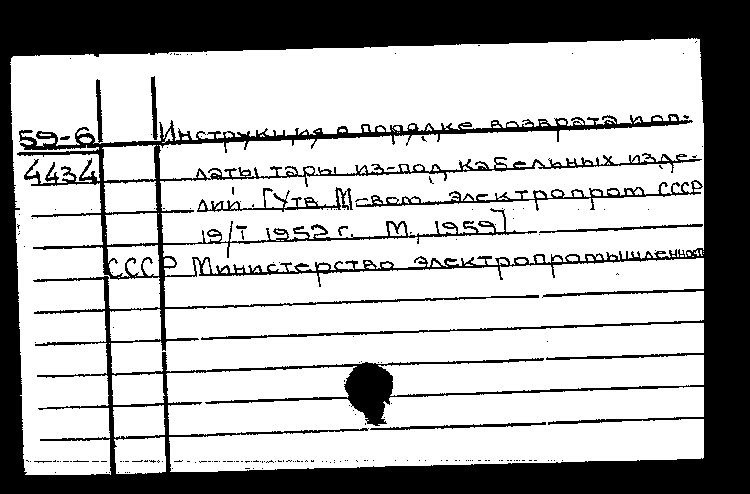 59-6 Инструкция о порядке возврата и оп-
4434 латы тары из-под кабельных изде-
лий. [Утв. М-вом электропром СССР
19/I 1952 г. М., 1959]
СССР Министерство электропромышленности